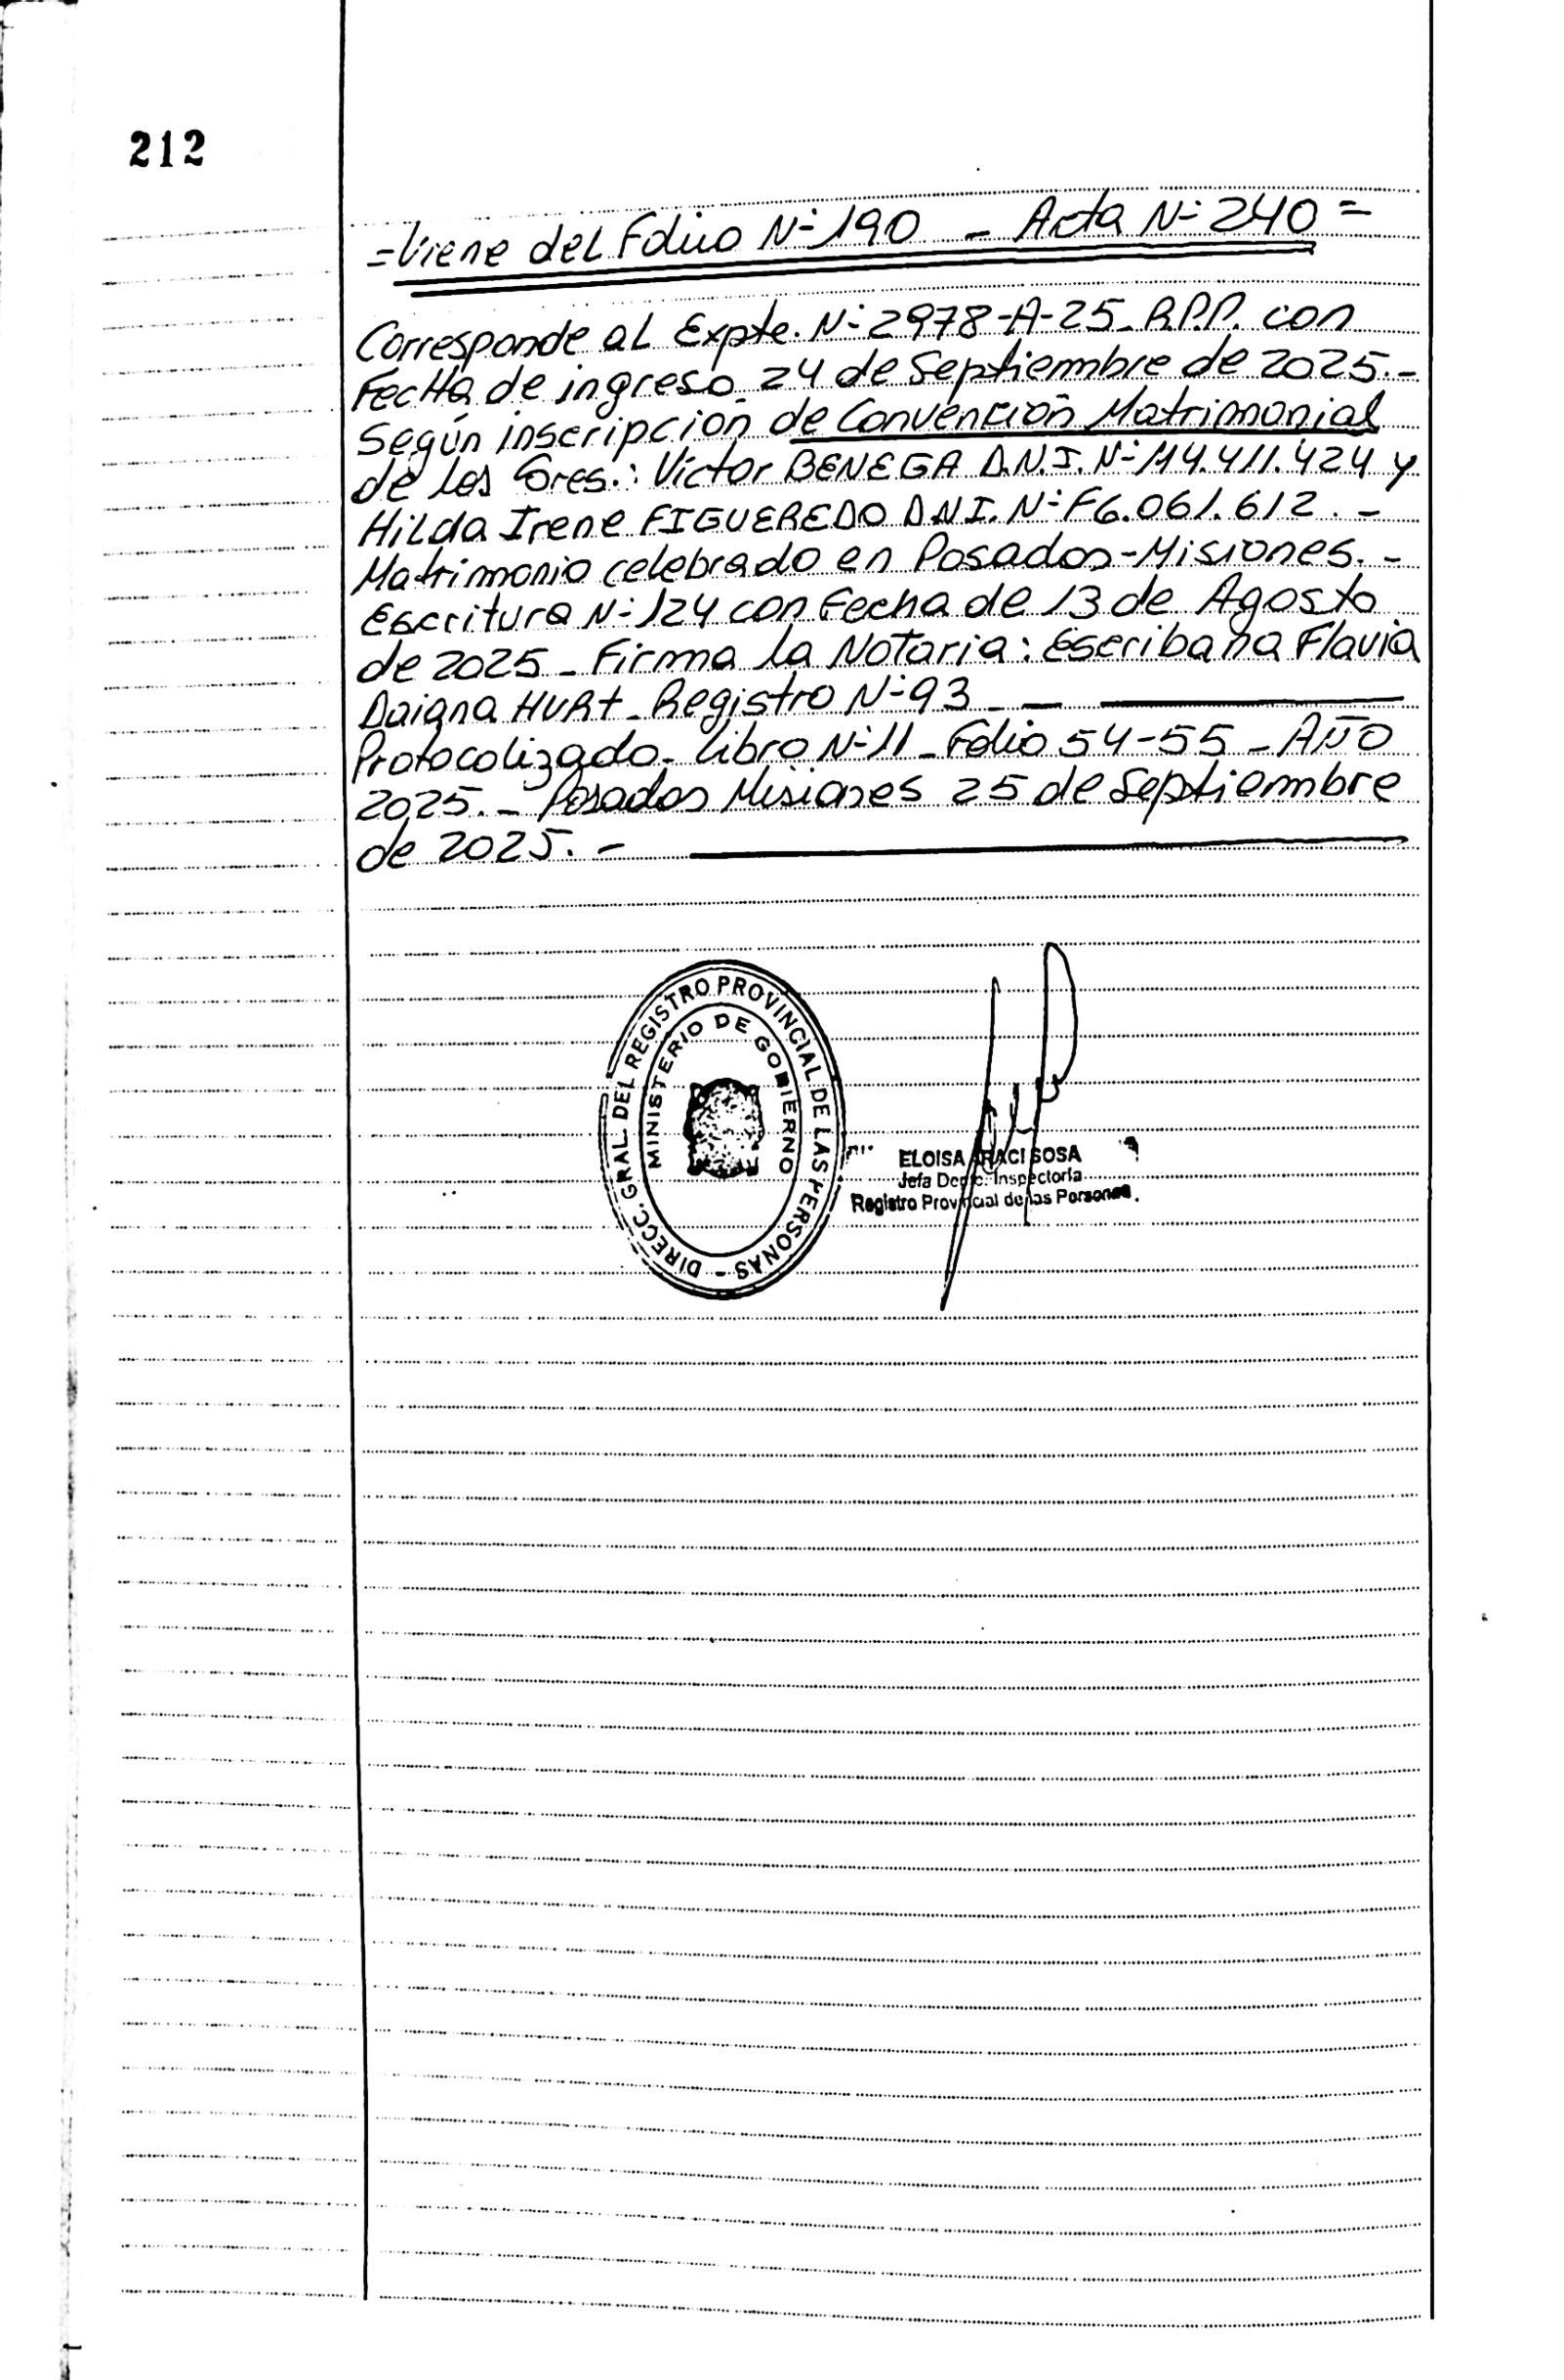 212
=Viene del Folio N-190 - Acta N-240=
Corresponde al Expte. N-2978-A-25_R.P.P. con
FecHa de ingreso 24 de Septiembre de 2025.-
Según inscripción de Convención Matrimonial
de los Sres.: Victor BENEGA D.N.I. N-14.411.424 y
Hilda Irene FIGUEREDO D.N.I. N-F6.061.612.-
Matrimonio celebrado en Posadas-Misiones.-
Escritura N-124 con Fecha de 13 de Agosto
de 2025_ Firma la Notaria: Escribana Flavia
Daiana HURt_Registro N-93 _ —
Protocolizado_ Libro N-11_Folio 54-55 - AÑO
2025._ Posadas Misiones 25 de Septiembre
de 2025.-
DIRECC. GRAL. DEL REGISTRO PROVINCIAL DE LAS PERSONAS -
MINISTERIO DE GOBIERNO
ELOISA ARACI SOSA
Jefa Depto. Inspectoría
Registro Provincial de las Personas